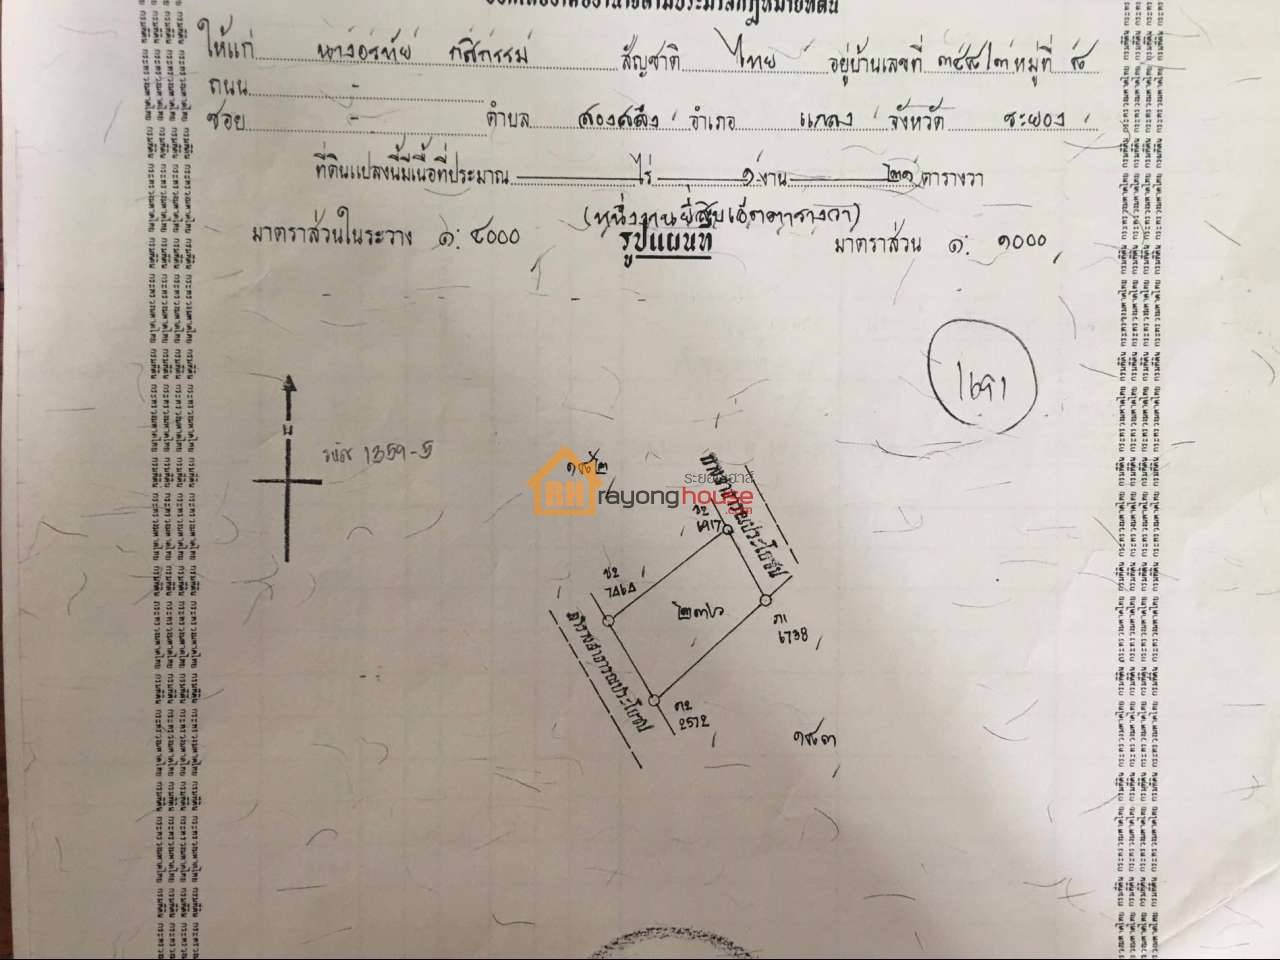 ให้แก่ นางอรทัย กสิกรรม สัญชาติ ไทย อยู่บ้านเลขที่ หมู่ที่
ถนน -
ซอย - ตำบล สองสลึง อำเภอ แกลง จังหวัด ระยอง
ที่ดินแปลงนี้มีเนื้อที่ประมาณ ไร่ ๑ งาน ๒๑ ตารางวา
(หนึ่งงานยี่สิบเอ็ดตารางวา)
มาตราส่วนในระวาง ๑: ๔๐๐๐ รูปแผนที่ มาตราส่วน ๑: ๑๐๐๐
น
รหัส 1359-5
๑๘๒
ระยองเฮาส์
RH rayonghouse
.com
ทางสาธารณประโยชน์
6917
ช2
7464
๒๓๖
6738
ลำรางสาธารณประโยชน์
ต2
2572
๑๘๓